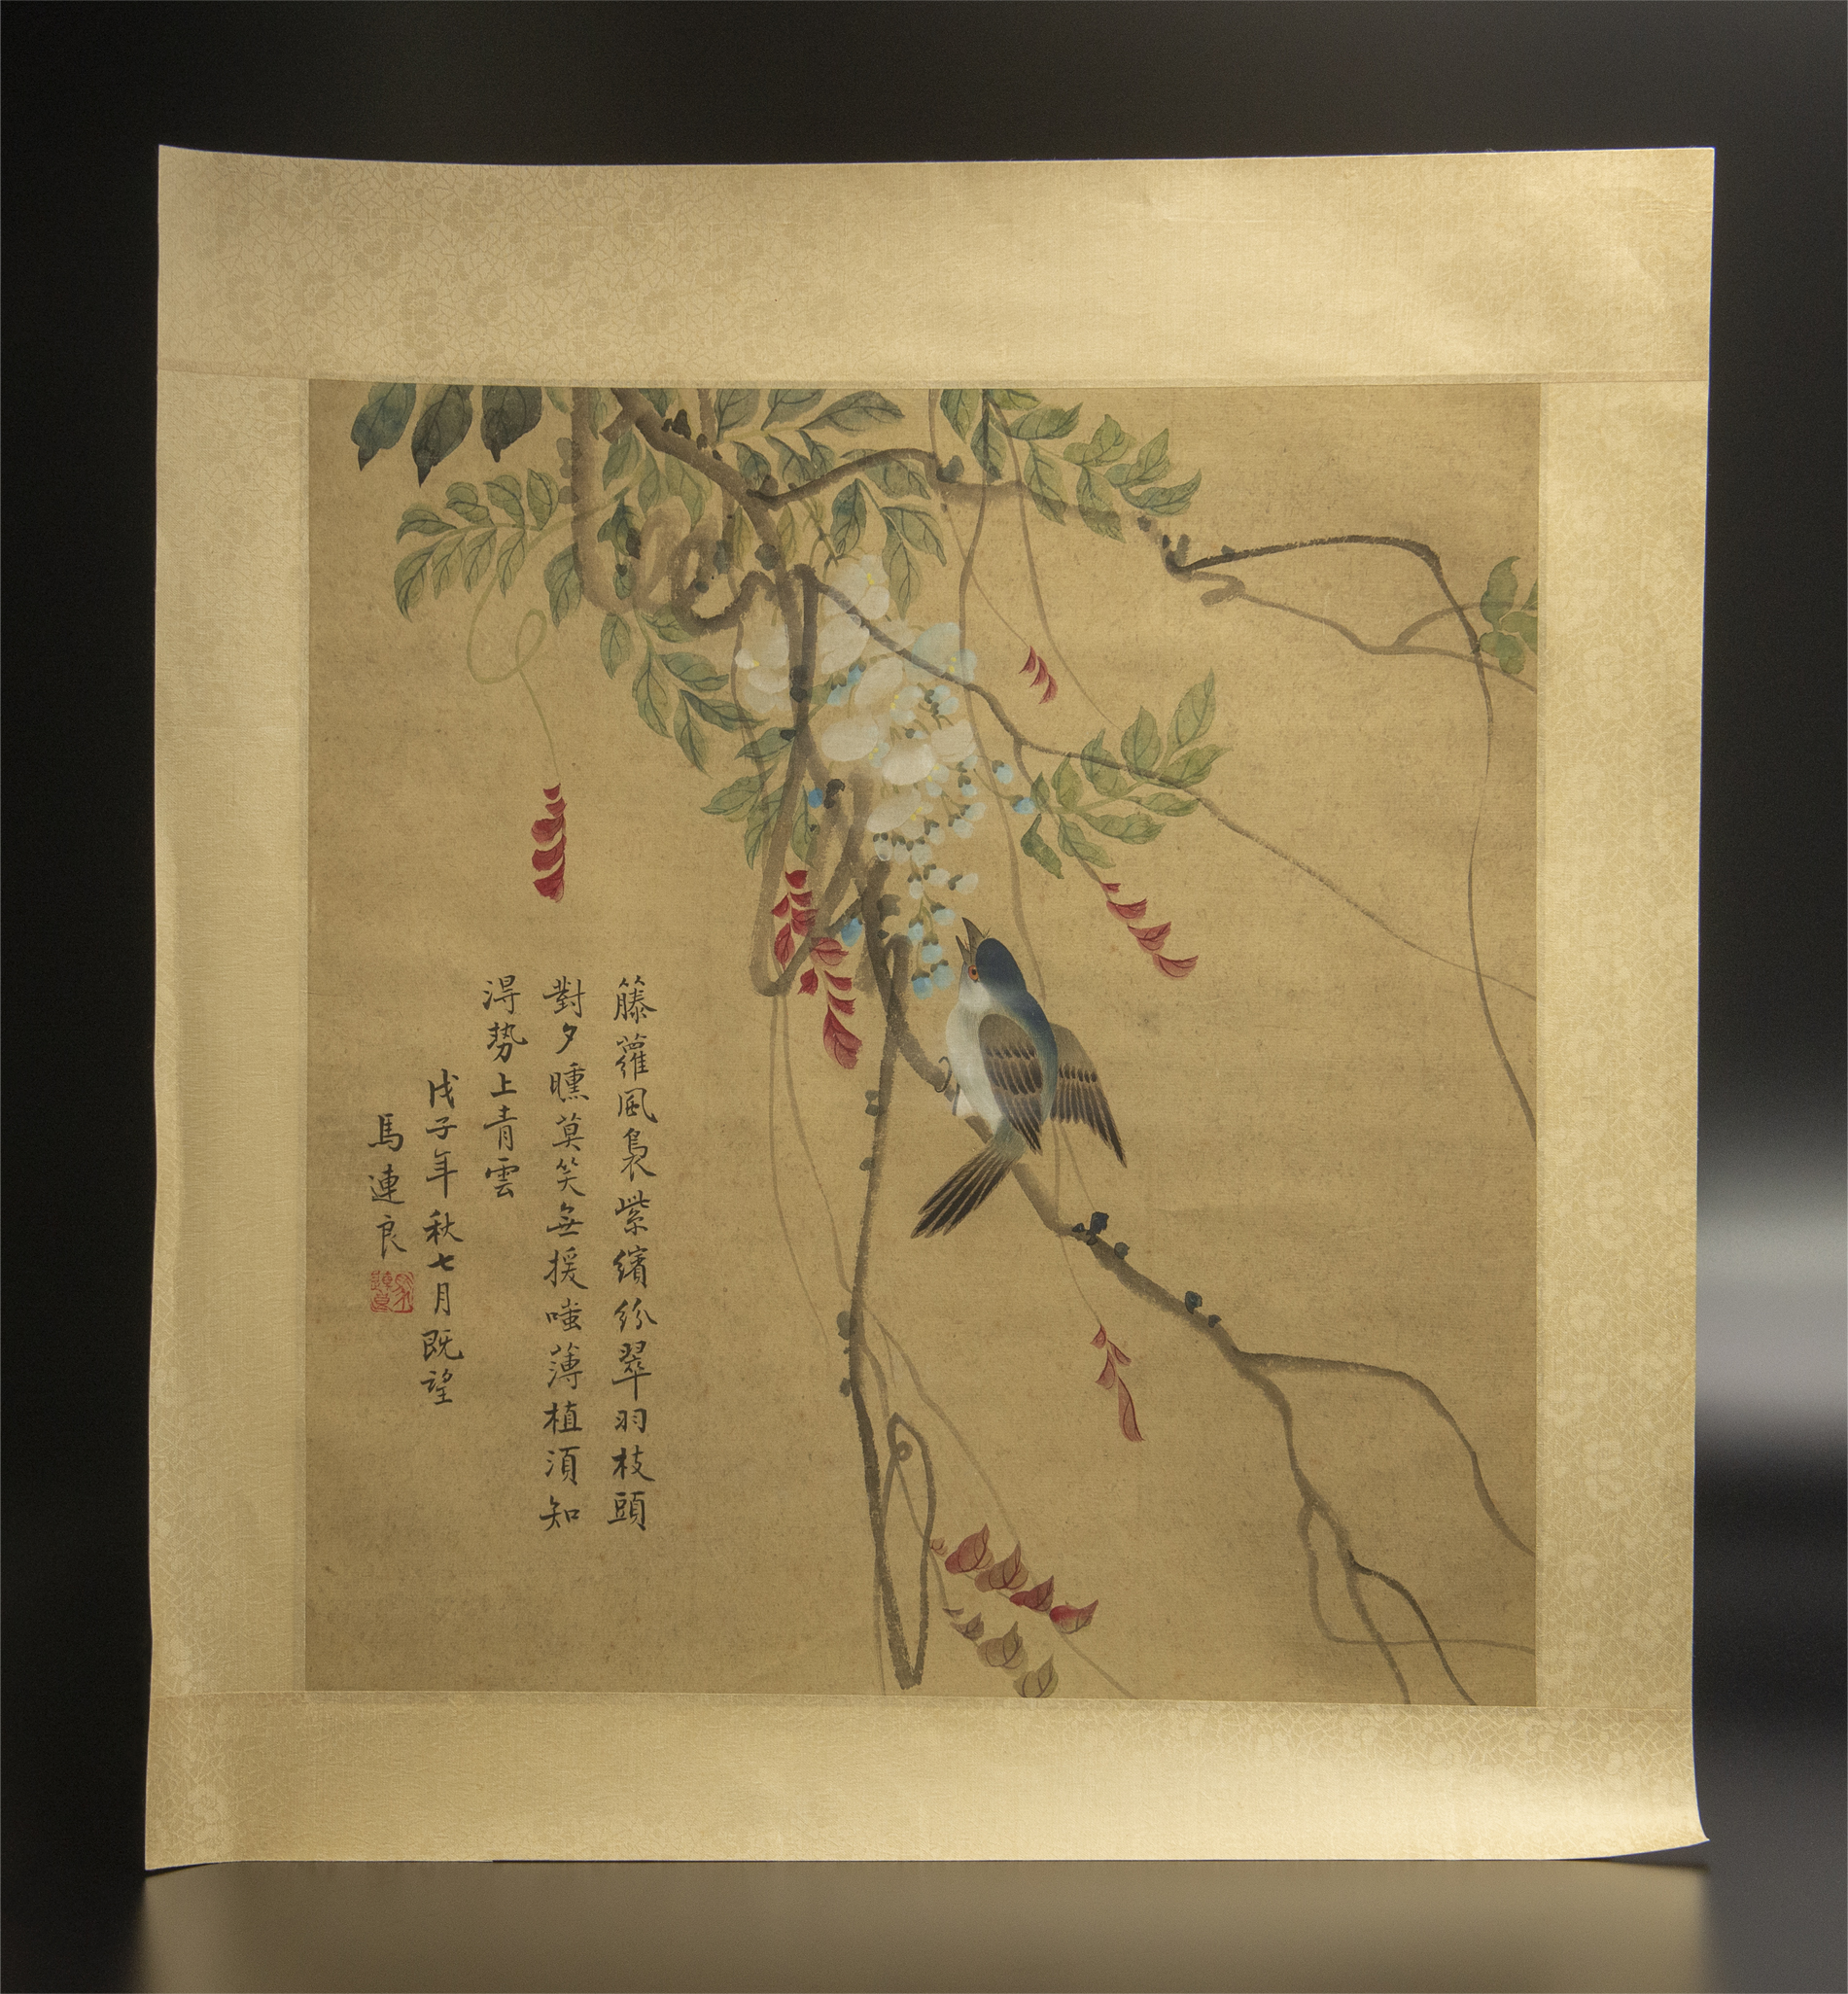 籐蘿風裊紫繽紛翠羽枝頭
對夕曛莫笑無援嗤薄植須知
得勢上青雲
戊子年秋七月既望
馬連良